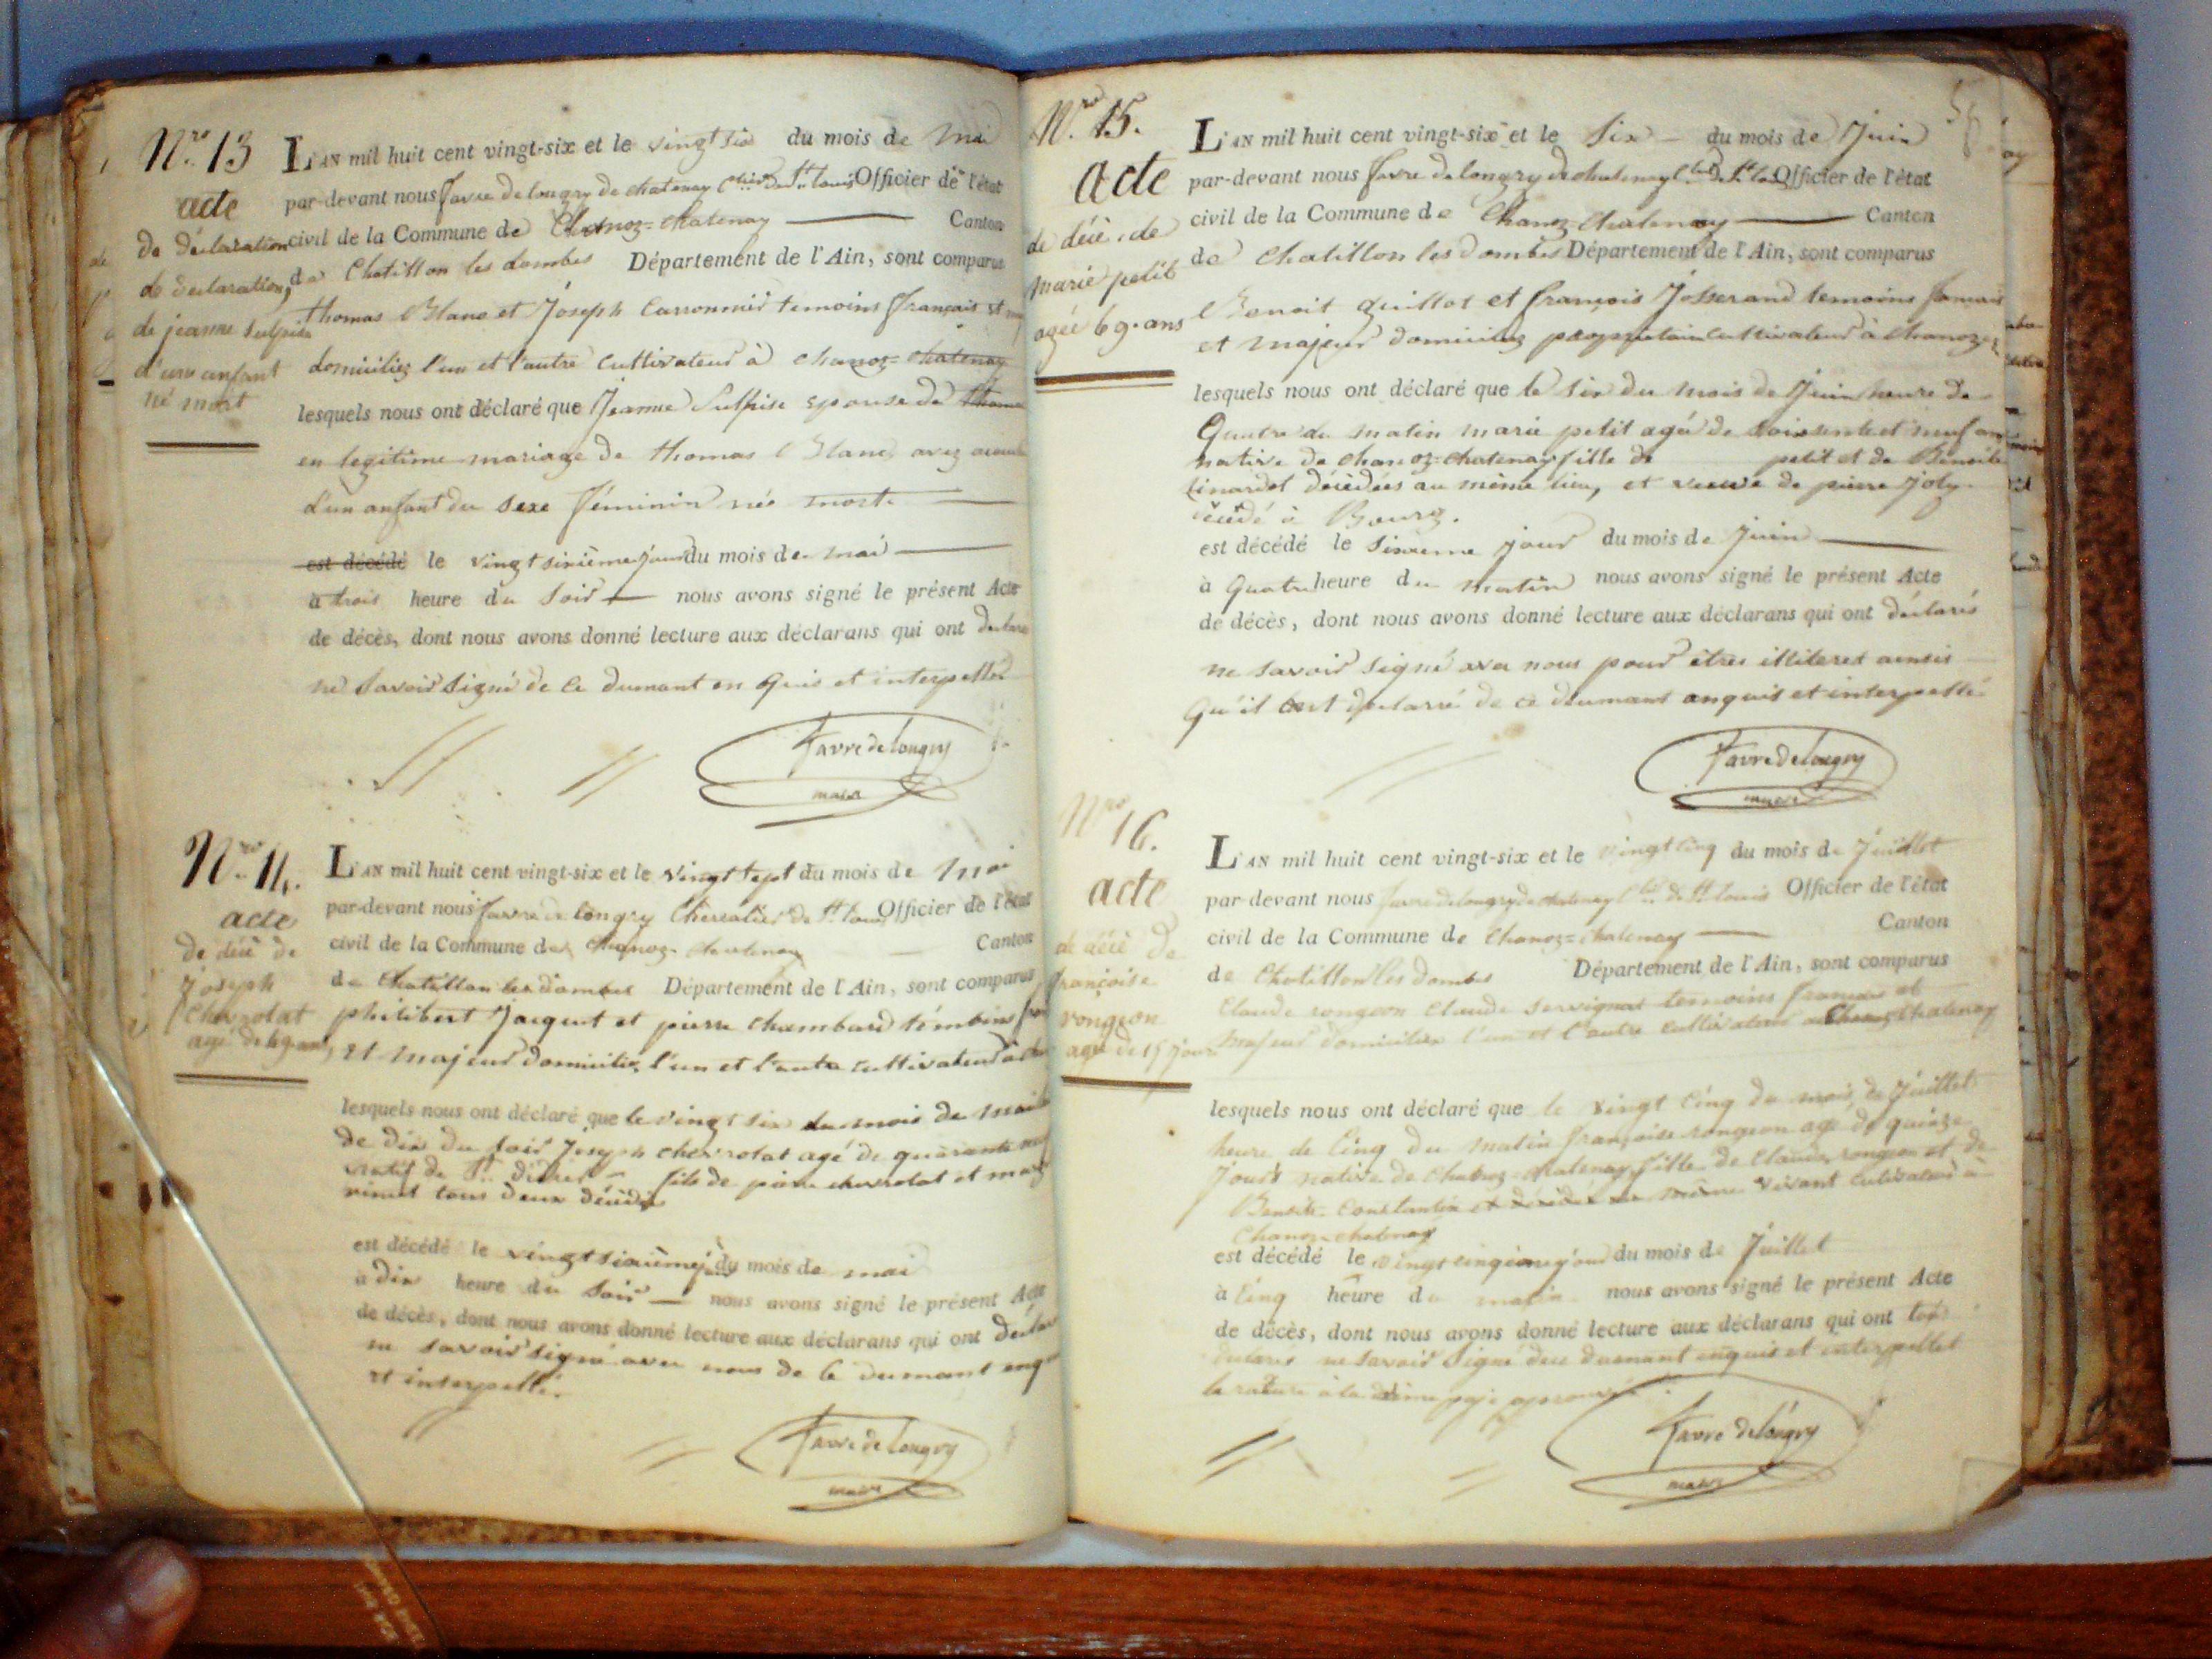 Nro 13
acte
de déclaration
de declaration,
de jeanne Sulpise
d'une anfant
né mort
L'AN mil huit cent vingt-six et le vingt six du mois de Mai
par-devant nous favre de longry de chatenay Officier de l'état
civil de la Commune de Chanoz=chatenay Canton
de Chatillon les dombes Département de l'Ain, sont comparus
thomas Blanc et Joseph temoins français et
domiciliez l'un et l'autre Cultivateur à chanoz=chatenay
lesquels nous ont déclaré que Jeanne Sulpise epouse de
en legitime mariage de thomas Blanc avez
d'un anfant du sexe féminin née morte
est décédé le vingt sixième jour du mois de mai
à trois heure du soir nous avons signé le présent Acte
de décès, dont nous avons donné lecture aux déclarans qui ont
ne savoir signé de ce dumant en quis et interpellé
favre de longry
maire
Nro 14.
acte
de déce de
Joseph
Chevrolat
agé de 49 ans
L'AN mil huit cent vingt-six et le vingt sept du mois de Mai
par-devant nous favre de longry Chevalier de St louis Officier de l'état
civil de la Commune de chanoz-chatenay Canton
de Chatillon les dombes Département de l'Ain, sont comparus
philibert Jacquet et pierre chambard témoins
et majeur domicilié, l'un et l'autre cultivateur à
lesquels nous ont déclaré que le vingt six du mois de mai
de dix du soir Joseph chevrolat agé de quarante
natif de St fils de pierre chevrolat et
tous deux décédés
est décédé le vingt sixième jour du mois de mai
à dix heure du soir nous avons signé le présent Acte
de décès, dont nous avons donné lecture aux déclarans qui ont
ne savoir signé avec nous de ce dumant
et interpellé.
favre de longry
maire
Nro 15.
acte
de décè de
marie petit
agée 69 ans
L'AN mil huit cent vingt-six et le Six du mois de Juin
par-devant nous favre de longry de chatenay Officier de l'état
civil de la Commune de Chanoz-Chatenay Canton
de Chatillon les dombes Département de l'Ain, sont comparus
Benoit guillot et françois Josserand temoins
et majeur domiciliez propriétaire cultivateur à chanoz
lesquels nous ont déclaré que le six du mois de Juin heure de
Quatre du matin marie petit agée de soixente et neuf ans
native de chanoz=chatenay fille de petit et de Benoite
décédées au même lieu, et veuve de pierre Joly
décédé à Bourg.
est décédé le sixieme jour du mois de Juin
à Quatre heure du matin nous avons signé le présent Acte
de décès, dont nous avons donné lecture aux déclarans qui ont déclarés
ne savoir signé avec nous pour êtres illiteres ainsis
Qu'il déclarré de ce dumant anquis et interpellé
favre de longry
maire
Nro 16.
acte
de décè de
françoise
rongeon
agé de 15 jours
L'AN mil huit cent vingt-six et le vingt cinq du mois de Juillet
par-devant nous favre de longry de chatenay de St louis Officier de l'état
civil de la Commune de Chanoz=chatenay Canton
de Chatillon les dombes Département de l'Ain, sont comparus
Claude rongeon Claude temoins français et
majeur domicilier l'un et l'autre cultivateur a Chanoz-Chatenay
lesquels nous ont déclaré que le vingt cinq du mois de Juillet
heure de Cinq du matin françoise rongeon agé de quinze
Jours native de Chanoz-chatenay fille de Claude rongeon et de
Benoite Constantin vivant cultivateur à
Chanoz-chatenay
est décédé le vingt cinqième jour du mois de Juillet
à Cinq heure du matin nous avons signé le présent Acte
de décès, dont nous avons donné lecture aux déclarans qui ont
declaré ne savoir signé dece dumant enquis et interpellé
la rature à la page approuvée
favre de longry
maire